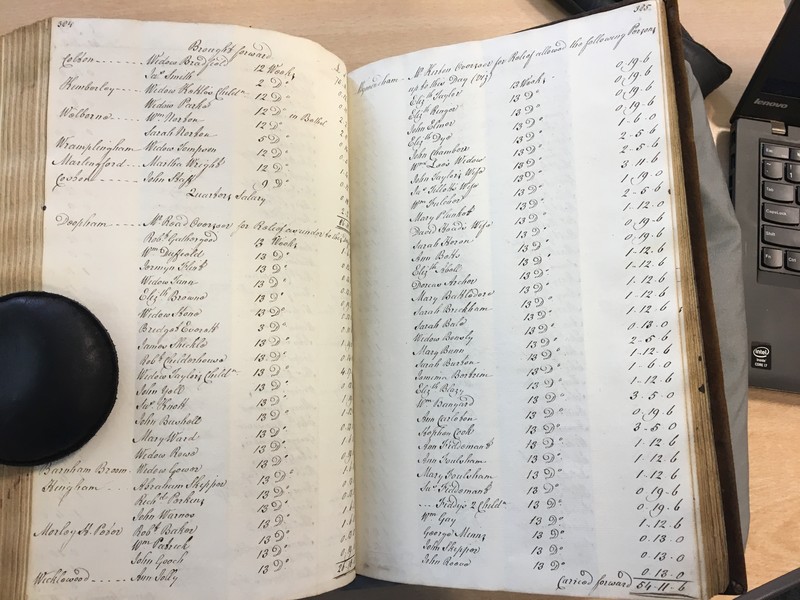 304
Brought forward
Colton Widow Bradfield 12 Weeks
Jas. Smith 2 Do
Kimberley Widow Childn 12 Do
Widow Parke 12 Do
Welborne Wm Norton 12 Do in Bethel
Sarah Norton 5 Do
Wramplingham Widow Simpson 12 Do
Marlingford Martha Wright 12 Do
Coston John Staff 9 Do
Quarters Salary
Deopham Mr Read Overseer for Relief as under to this
Robt Gathergood 12 Weeks
Wm Duffield 13 Do
Jermyn Flint 13 Do
Widow Lana 13 Do
Elizth Browne 13 Do
Widow Stone 13 Do
Bridget Everett 3 Do
James Stickle 13 Do
Robt Childerhouse 13 Do
Widow Taylors Childn 13 Do
John Goll 13 Do
Jas Knott 13 Do
John Bushell 13 Do
Mary Ward 13 Do
Widow Rowe 13 Do
Barnham Broom Widow Gower 13 Do
Hingham Abraham Skipper 13 Do
Richd Parker 13 Do
John Warnes 13 Do
Morley St. Peter Robt Baker 13 Do
Wm Patrick 13 Do
John Gooch 13 Do
Wicklewood Ann Jolly 13 Do
305
Wymondham Mr Kerton Overseer for Relief allowed the following Persons
up to this Day (Viz)
Elizth Taylor 13 Weeks 0.19.6
Elizth Ringer 13 Do 0.19.6
John Elmer 13 Do 0.19.6
Elizth Dye 13 Do 0.19.6
John Chambers 13 Do 1.6.0
Wm Lees Widow 13 Do 2.5.6
John Taylors Wife 13 Do 2.5.6
Wife 13 Do 3.11.6
Wm Fulcher 13 Do 1.19.0
Mary Plunket 13 Do 2.5.6
David Heads Wife 13 Do 1.12.0
Sarah Heron 13 Do 0.19.6
Ann Betts 13 Do 0.19.6
Elizth Poole 13 Do 1.12.6
Dorcas Archer 13 Do 1.12.6
Mary Buckledore 13 Do 1.12.6
Sarah Brickham 13 Do 1.12.6
Sarah Bale 13 Do 1.12.6
Widow Bensly 13 Do 0.13.0
Mary Bunn 13 Do 2.5.6
Sarah Burton 13 Do 1.12.6
Jemima Barbrim 13 Do 1.6.0
Elizth Blazy 13 Do 1.12.6
Wm Banyard 13 Do 3.5.0
Ann Carlebon 13 Do 0.19.6
Stephen Cook 13 Do 3.5.0
Ann Fiddeman 13 Do 1.12.6
Ann Foulsham 13 Do 1.12.6
Mary Foulsham 13 Do 1.12.6
Jas Fiddeman 13 Do 0.19.6
Fiddys 2 Childn 13 Do 0.19.6
Wm Gay 13 Do 1.12.6
George Minns 13 Do 0.13.0
John Skipper 13 Do 0.13.0
John Reeve 13 Do 0.13.0
Carried forward 54.11.6
lenovo
intel
CORE i7